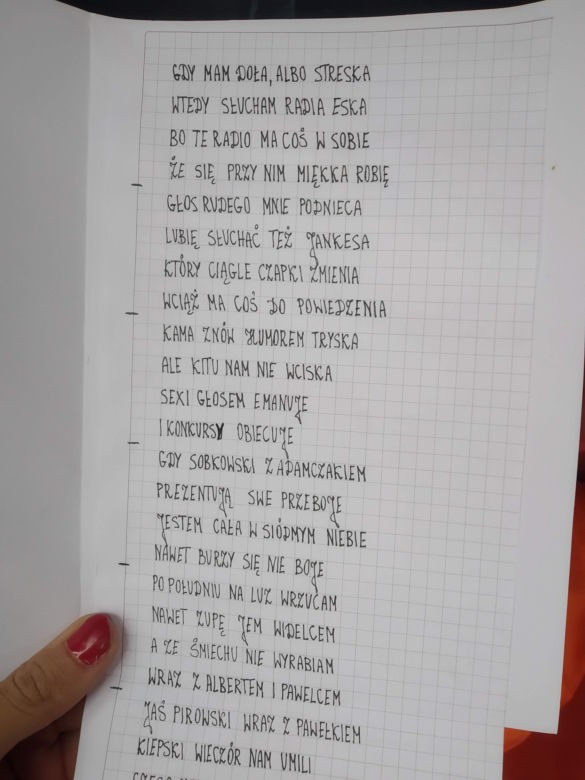 GDY MAM DOŁA, ALBO STRESKA
WTEDY SŁUCHAM RADIA ESKA
BO TE RADIO MA COŚ W SOBIE
ŻE SIĘ PRZY NIM MIĘKKA ROBIĘ
GŁOS RUDEGO MNIE PODNIECA
LUBIĘ SŁUCHAĆ TEŻ JANKESA
KTÓRY CIĄGLE CZAPKI ZMIENIA
WCIĄŻ MA COŚ DO POWIEDZENIA
KAMA ZNÓW HUMOREM TRYSKA
ALE KITU NAM NIE WCISKA
SEXI GŁOSEM EMANUJE
I KONKURSY OBIECUJE
GDY SOBKOWSKI Z ADAMCZAKIEM
PREZENTUJĄ SWE PRZEBOJE
JESTEM CAŁA W SIÓDMYM NIEBIE
NAWET BURZY SIĘ NIE BOJE
PO POŁUDNIU NA LUZ WRZUCAM
NAWET ZUPĘ JEM WIDELCEM
A ZE ŚMIECHU NIE WYRABIAM
WRAZ Z ALBERTEM I PAWELCEM
JAŚ PIROWSKI WRAZ Z PAWEŁKIEM
KIEPSKI WIECZÓR NAM UMILI